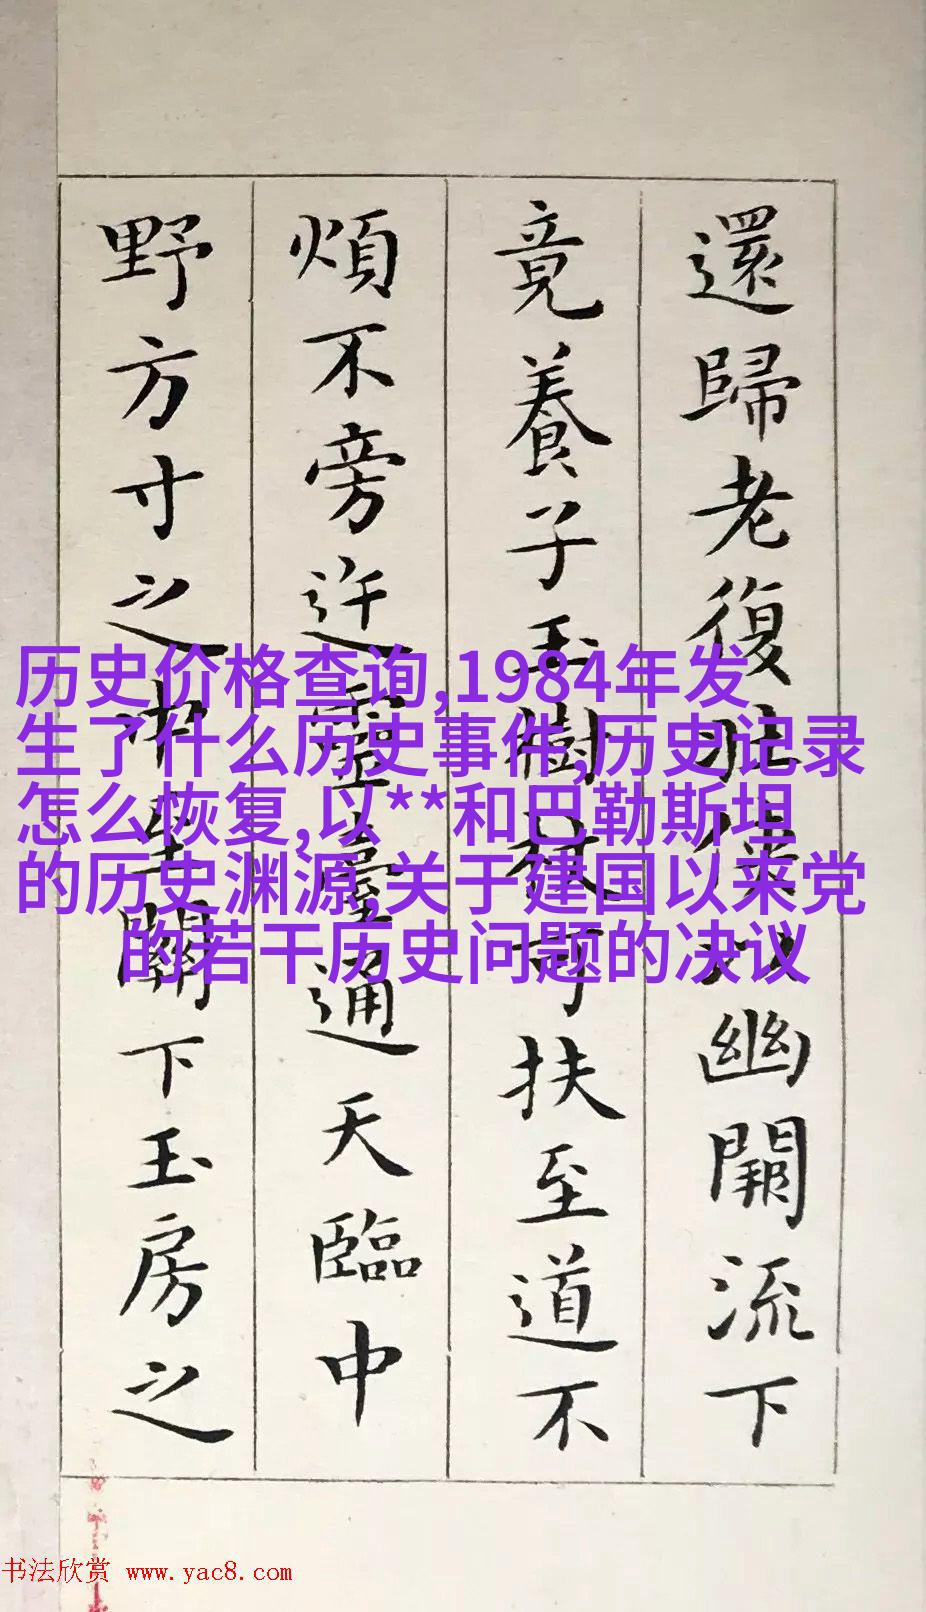 還歸老復壯俠以幽闕流下
竟養子玉樹杖可扶至道不
煩不旁迕靈臺通天臨中
野方寸之中至關下玉房之
历史价格查询,1984年发
生了什么历史事件,历史记录
怎么恢复,以**和巴勒斯坦
的历史渊源,关于建国以来党
的若干历史问题的决议
书法欣赏 www.yac8.com